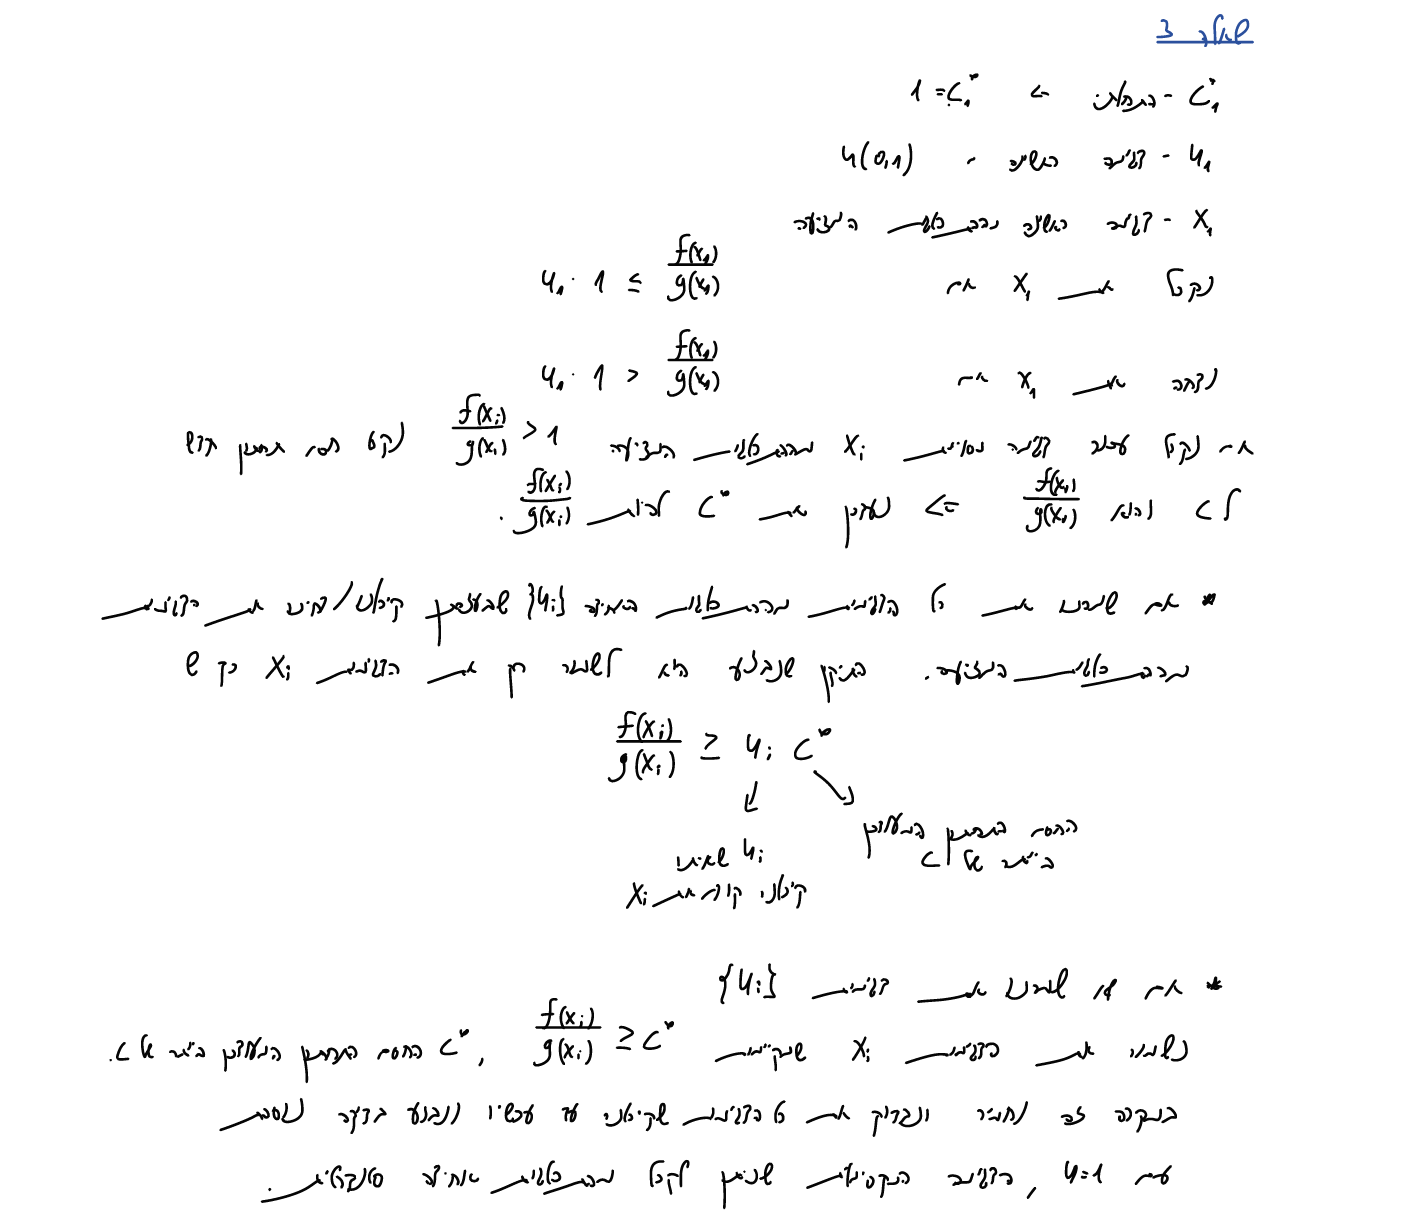 שאלה 3
C₁* - התחלתי => 1 = C₁*
u₁ - דגימה ראשונה מ - u(0,1)
X₁ - דגימה ראשונה מהתפלגות המציעה
נקבל את X₁ אם u₁ · 1 ≤ f(x₁)/g(x₁)
נדחה את X₁ אם u₁ · 1 > f(x₁)/g(x₁)
אם נקבל עבור דגימה מסוימת Xᵢ מהתפלגות המציעה f(xᵢ)/g(xᵢ) > 1 נקבל חסם תחתון חדש
ל C והוא f(xᵢ)/g(xᵢ) => נעדכן את C* להיות f(xᵢ)/g(xᵢ).
* אם שמרנו את כל הדגימות מההתפלגות האחידה {uᵢ} שבעזרתן קיבלנו/דחינו את הדגימות
מהתפלגות המציעה. התיקון שנבצע הוא לשמור רק את הדגימות Xᵢ כך ש
f(xᵢ)/g(xᵢ) ≥ uᵢ C*
החסם התחתון המעודכן
ביותר של C
uᵢ שאיתו
קיבלנו קודם את Xᵢ
* אם לא שמרנו את דגימות {uᵢ}
נשמור את הדגימות Xᵢ שמקיימות f(xᵢ)/g(xᵢ) ≥ C*, C* החסם התחתון המעודכן ביותר של C.
במקרה זה נחמיר ונבדוק את כל הדגימות שקיבלנו עד עכשיו ונבצע בדיקה נוספת
עם u=1, הדגימה המקסימלית שניתן לקבל מהתפלגות אחידה סטנדרטית.